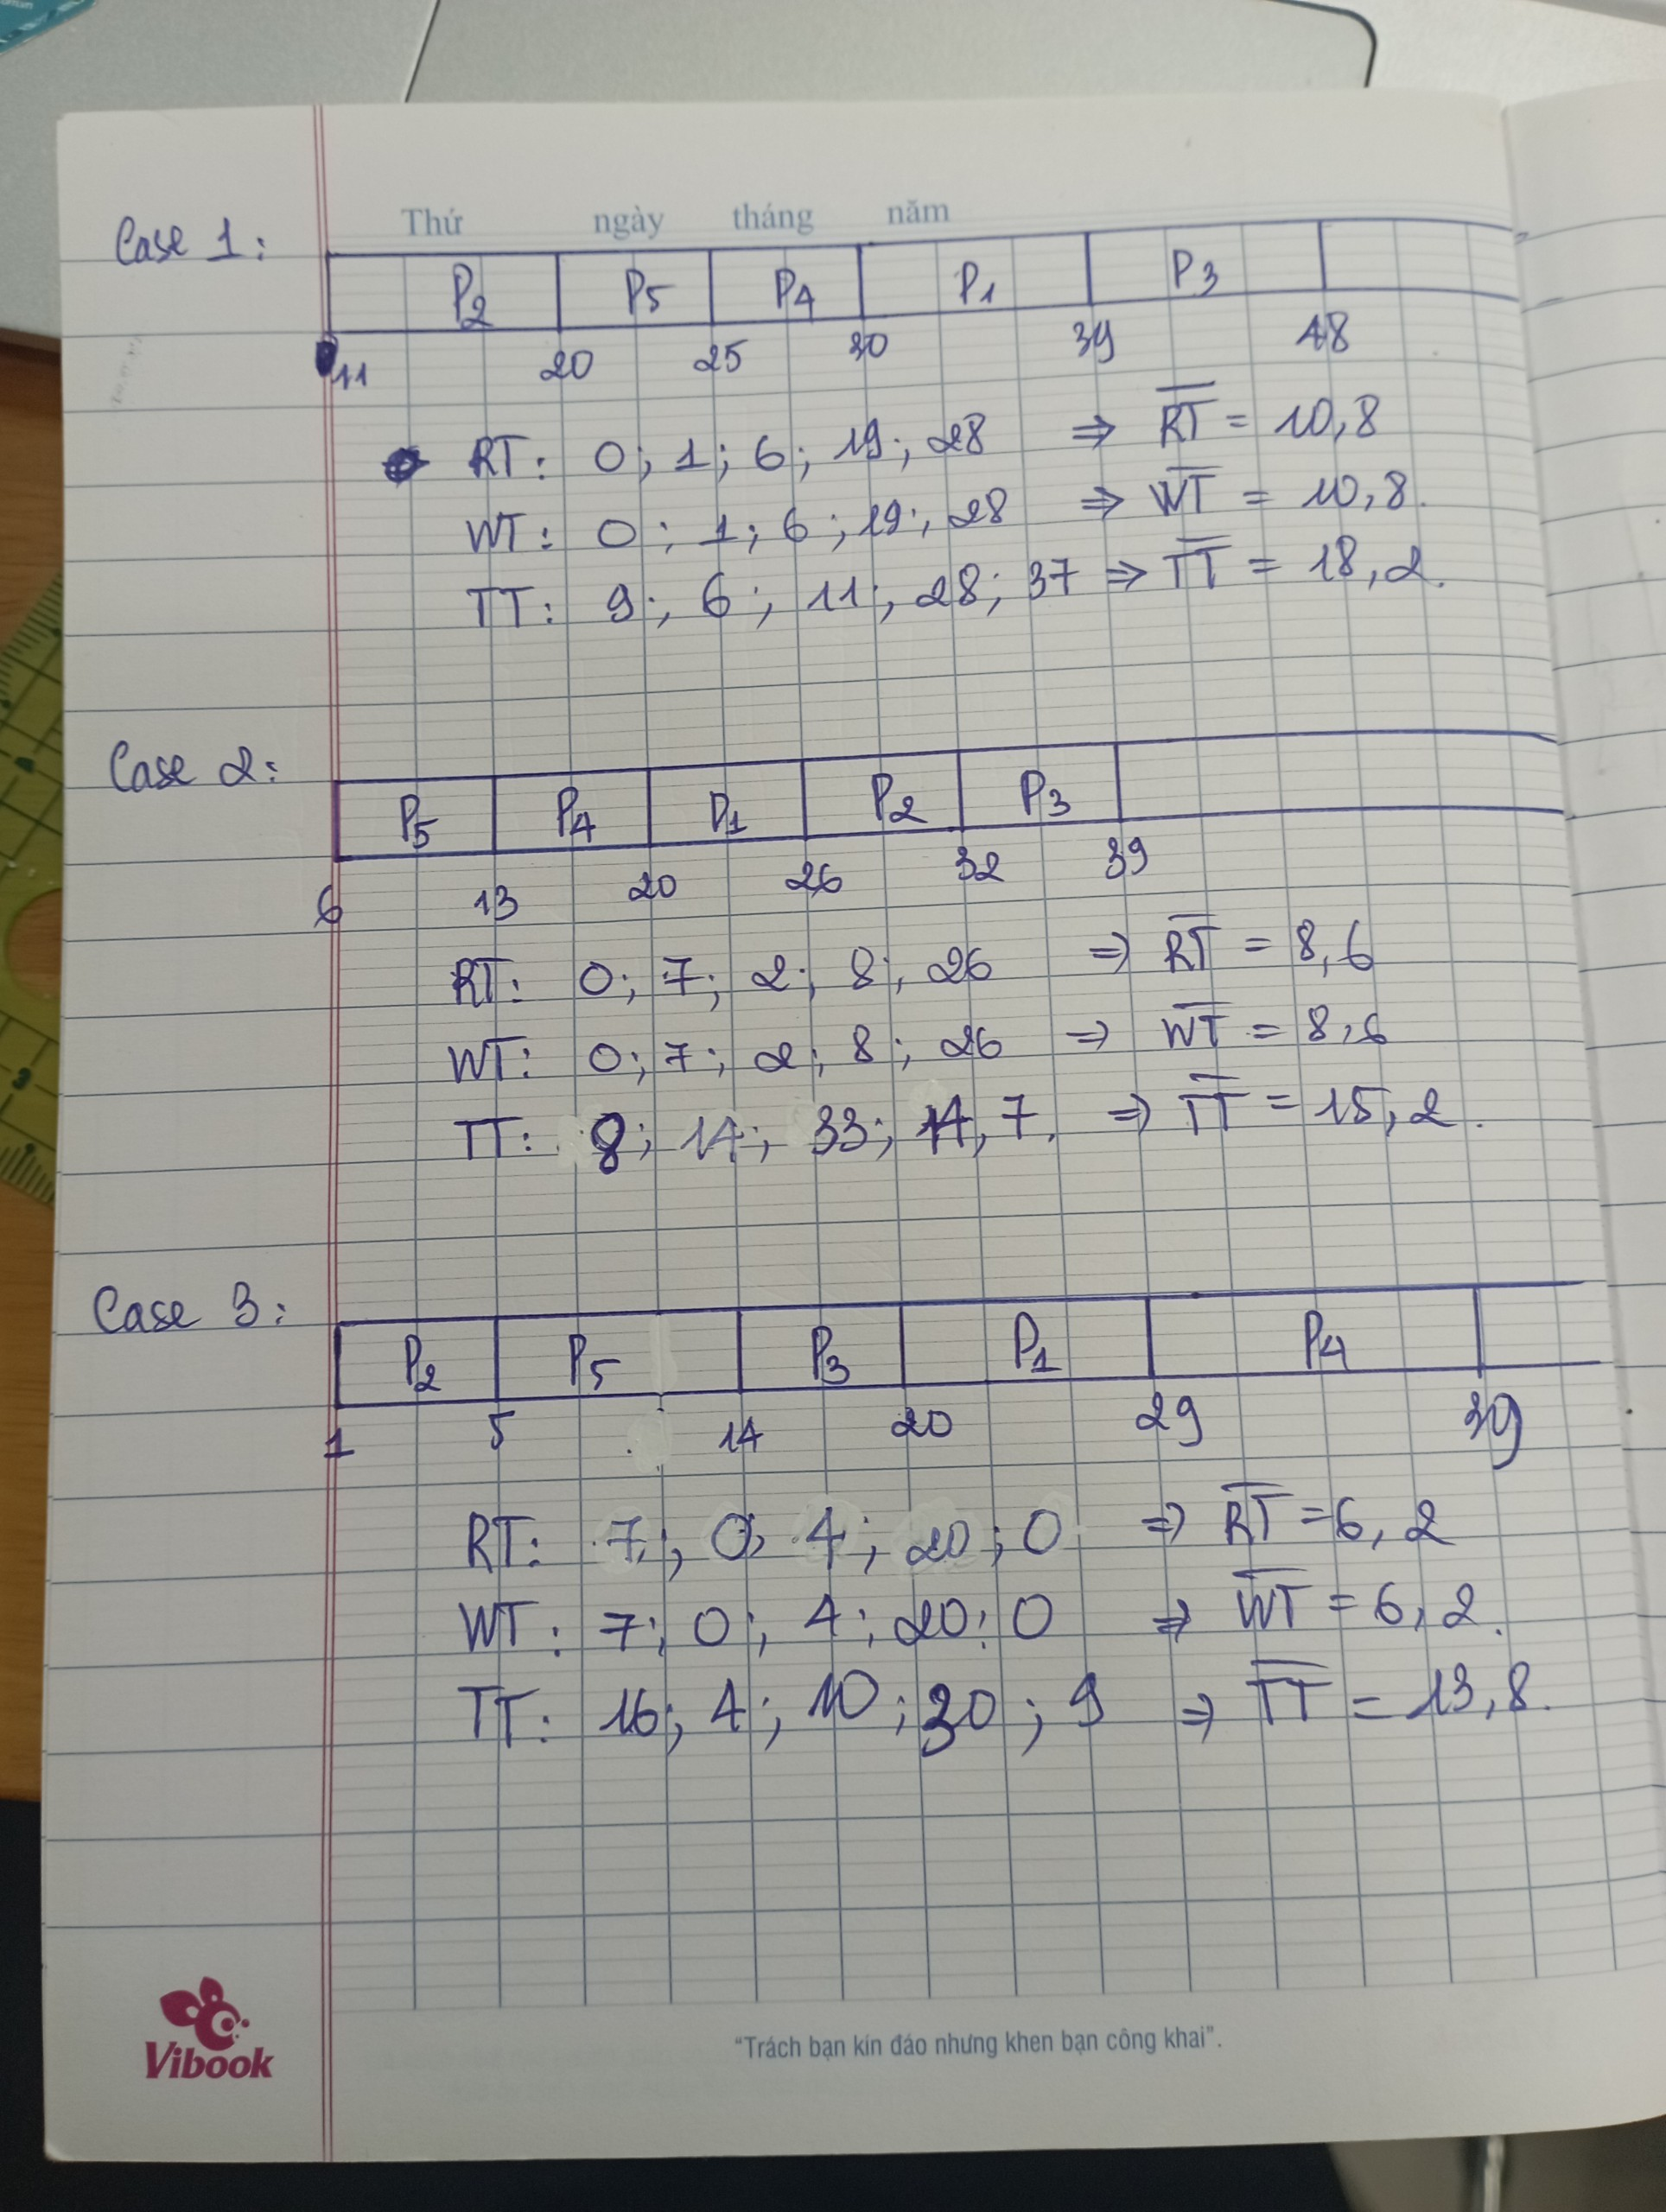 Thứ ngày tháng năm
Case 1:
P2 P5 P4 P1 P3
11 20 25 30 39 48
RT: 0; 1; 6; 19; 28 => RT = 10,8
WT: 0; 1; 6; 19; 28 => WT = 10,8.
TT: 9; 6; 11; 28; 37 => TT = 18,2.
Case 2:
P5 P4 P1 P2 P3
6 13 20 26 32 39
RT: 0; 7; 2; 8; 26 => RT = 8,6
WT: 0; 7; 2; 8; 26 => WT = 8,6
TT: 8; 14; 33; 14, 7. => TT = 15,2.
Case 3:
P2 P5 P3 P1 P4
1 5 14 20 29 39
RT: 7; 0; 4; 20; 0 => RT = 6,2
WT: 7; 0; 4; 20; 0 => WT = 6,2.
TT: 16; 4; 10; 30; 9 => TT = 13,8.
Vibook
“Trách bạn kín đáo nhưng khen bạn công khai”.